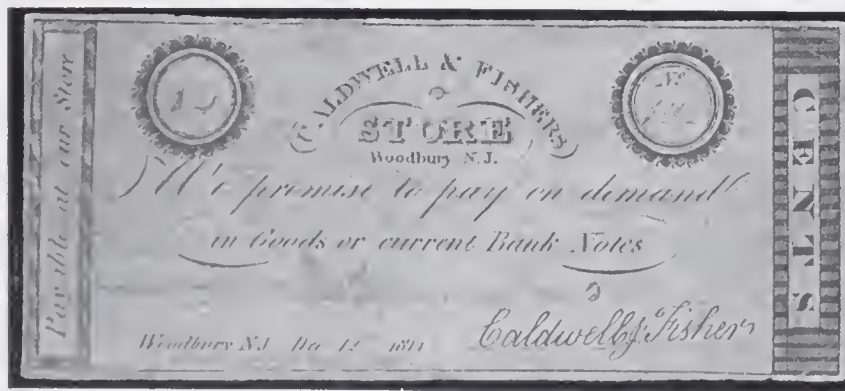 Payable at our Store
No
CALDWELL & FISHERS
STORE
Woodbury N.J.
We promise to pay on demand
in Goods or current Bank Notes
Woodbury N.J. Dec 12
Caldwell & Fisher
CENTS